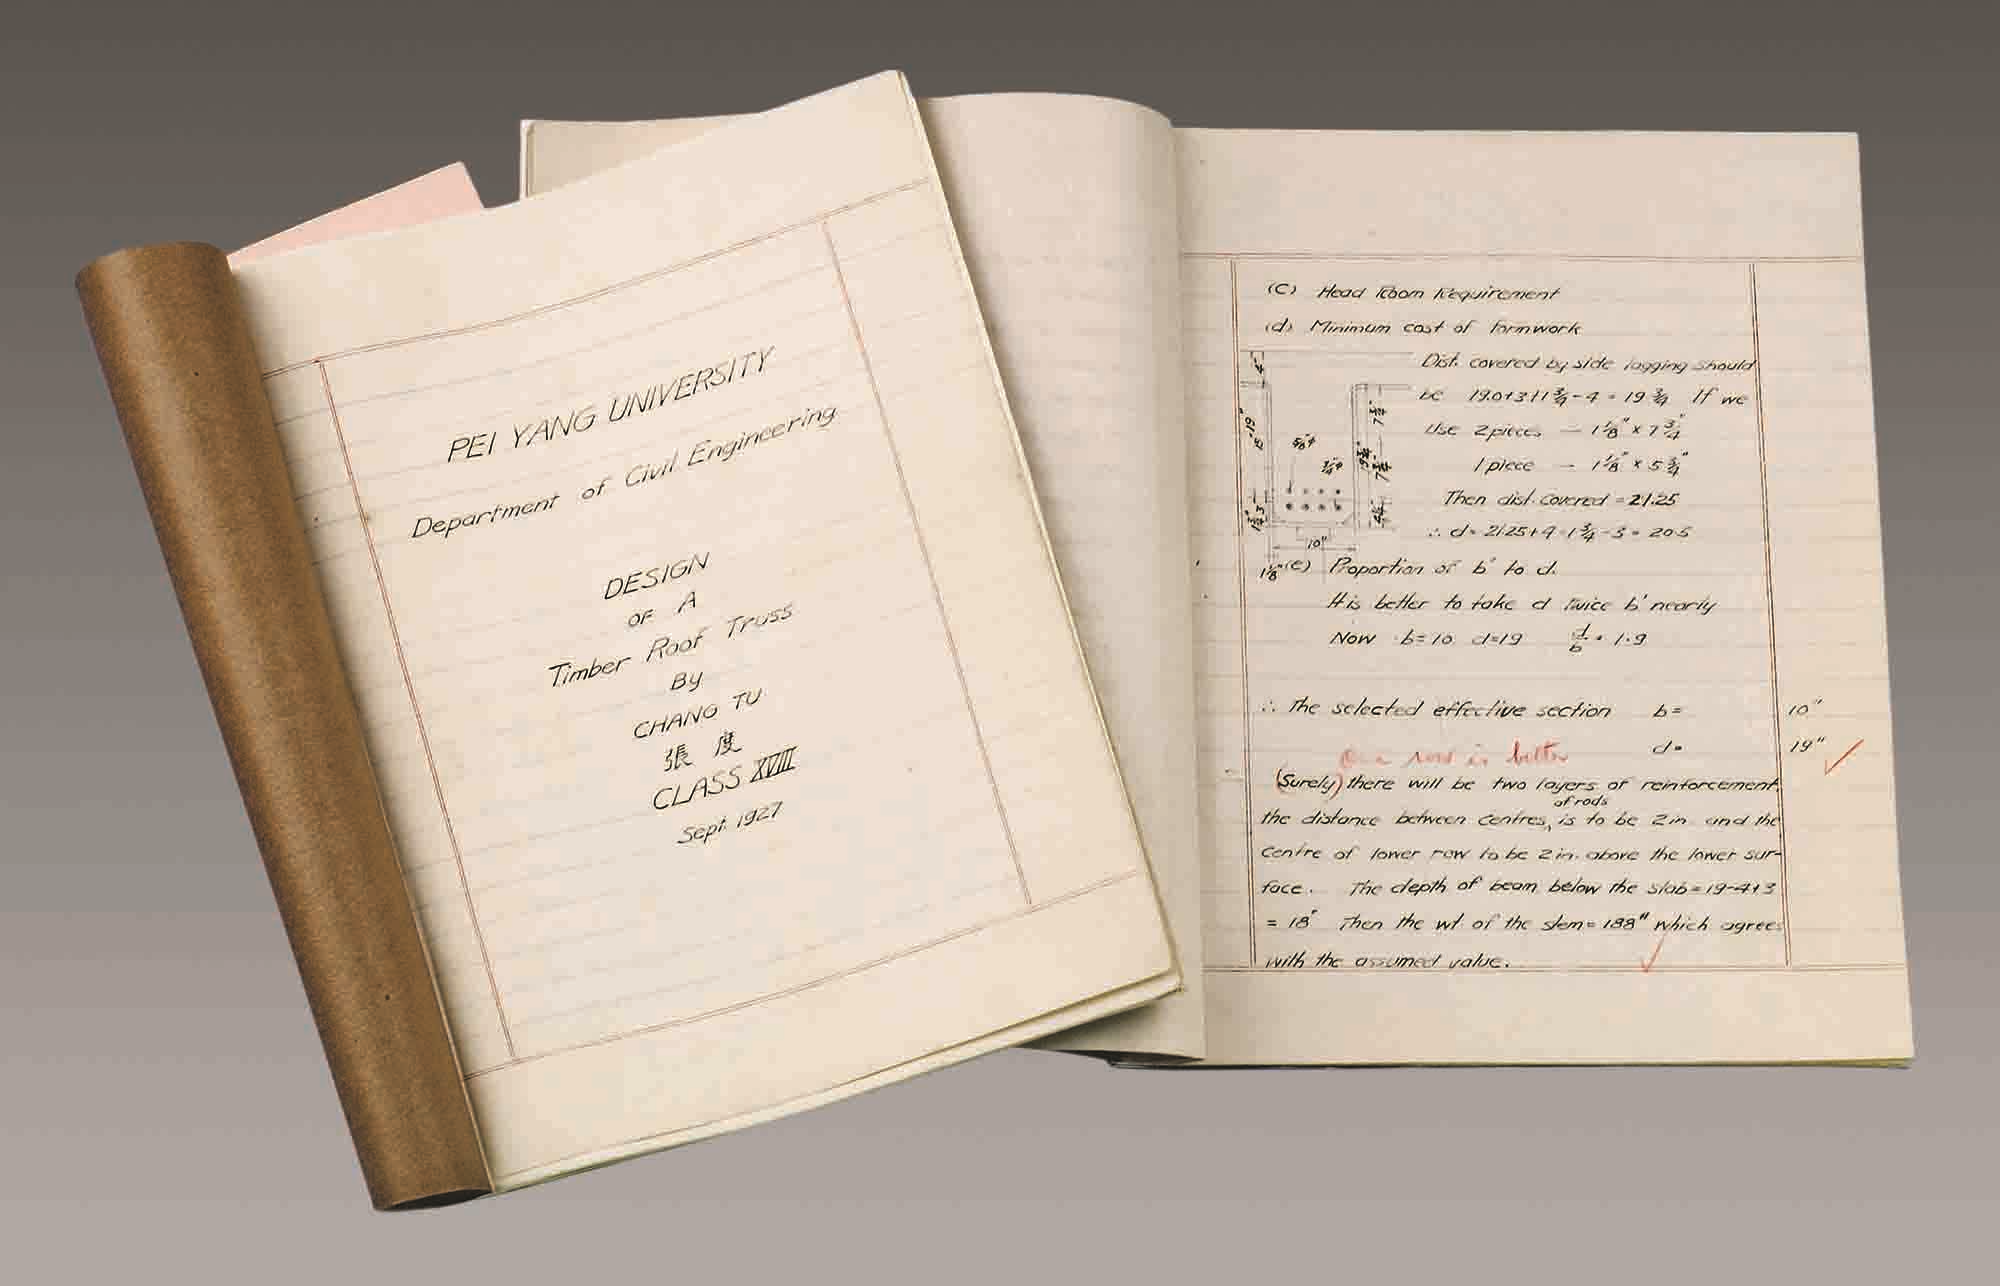 PEI YANG UNIVERSITY
Department of Civil Engineering
DESIGN
OF A
Timber Roof Truss
By
CHANG TU
張 度
CLASS XVIII
Sept. 1927
(C) Head Room Requirement
(d) Minimum cost of formwork
Dist. covered by side lagging should
be 19.0+3+1 3/4-4 = 19 3/4 If we
Use 2 pieces — 1 1/8" x 7 3/4"
1 piece — 1 1/8" x 5 3/4"
Then dist. covered = 21.25
∴ d = 21.25+4-1 3/4-3 = 20.5
5/8"φ
3/4"φ
10"
1 1/8"
(e) Proportion of b' to d.
It is better to take d twice b' nearly
Now b=10 d=19 d/b = 1.9
∴ The selected effective section b= 10"
d= 19"
One row is better
(Surely) there will be two layers of reinforcement.
of rods
the distance between centres, is to be 2 in. and the
centre of lower row to be 2 in. above the lower sur-
face. The depth of beam below the slab = 19-4+3
= 18" Then the wt. of the stem = 188# which agrees
with the assumed value.